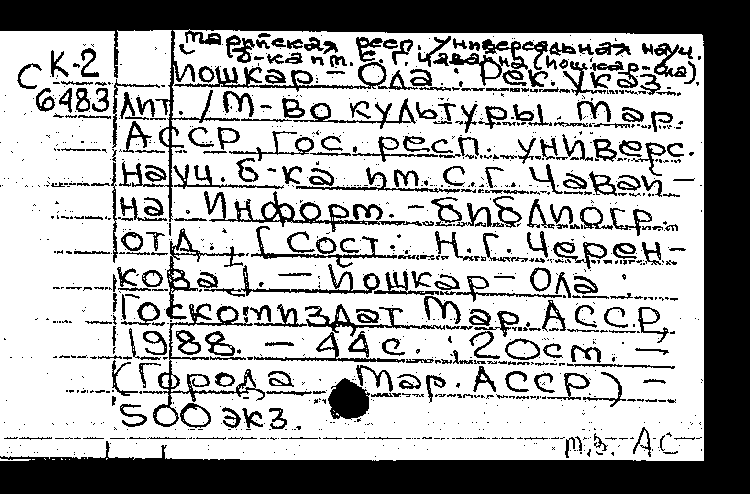 Марийская респ. универсальная науч.
б-ка им. С. Г. Чавайна (Йошкар-Ола).
С К-2
6483
Йошкар-Ола : Рек. указ.
лит. / М-во культуры Мар.
АССР, Гос. респ. универс.
науч. б-ка им. С. Г. Чавай-
на. Информ.-библиогр.
отд. ; [Сост.: Н. Г. Черен-
кова]. — Йошкар-Ола :
Госкомиздат Мар. АССР,
1988. — 44 с. ; 20 см. —
(Города Мар. АССР) —
500 экз.
т.з. АС